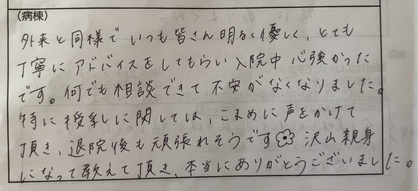 (病棟)
外来と同様でいつも皆さん明るく優しく、とても
丁寧にアドバイスをしてもらい入院中心強かった
です。何でも相談できて不安がなくなりました。
特に授乳に関しては、こまめに声をかけて
頂き、退院後も頑張れそうです 沢山親身
になって教えて頂き、本当にありがとうございました。